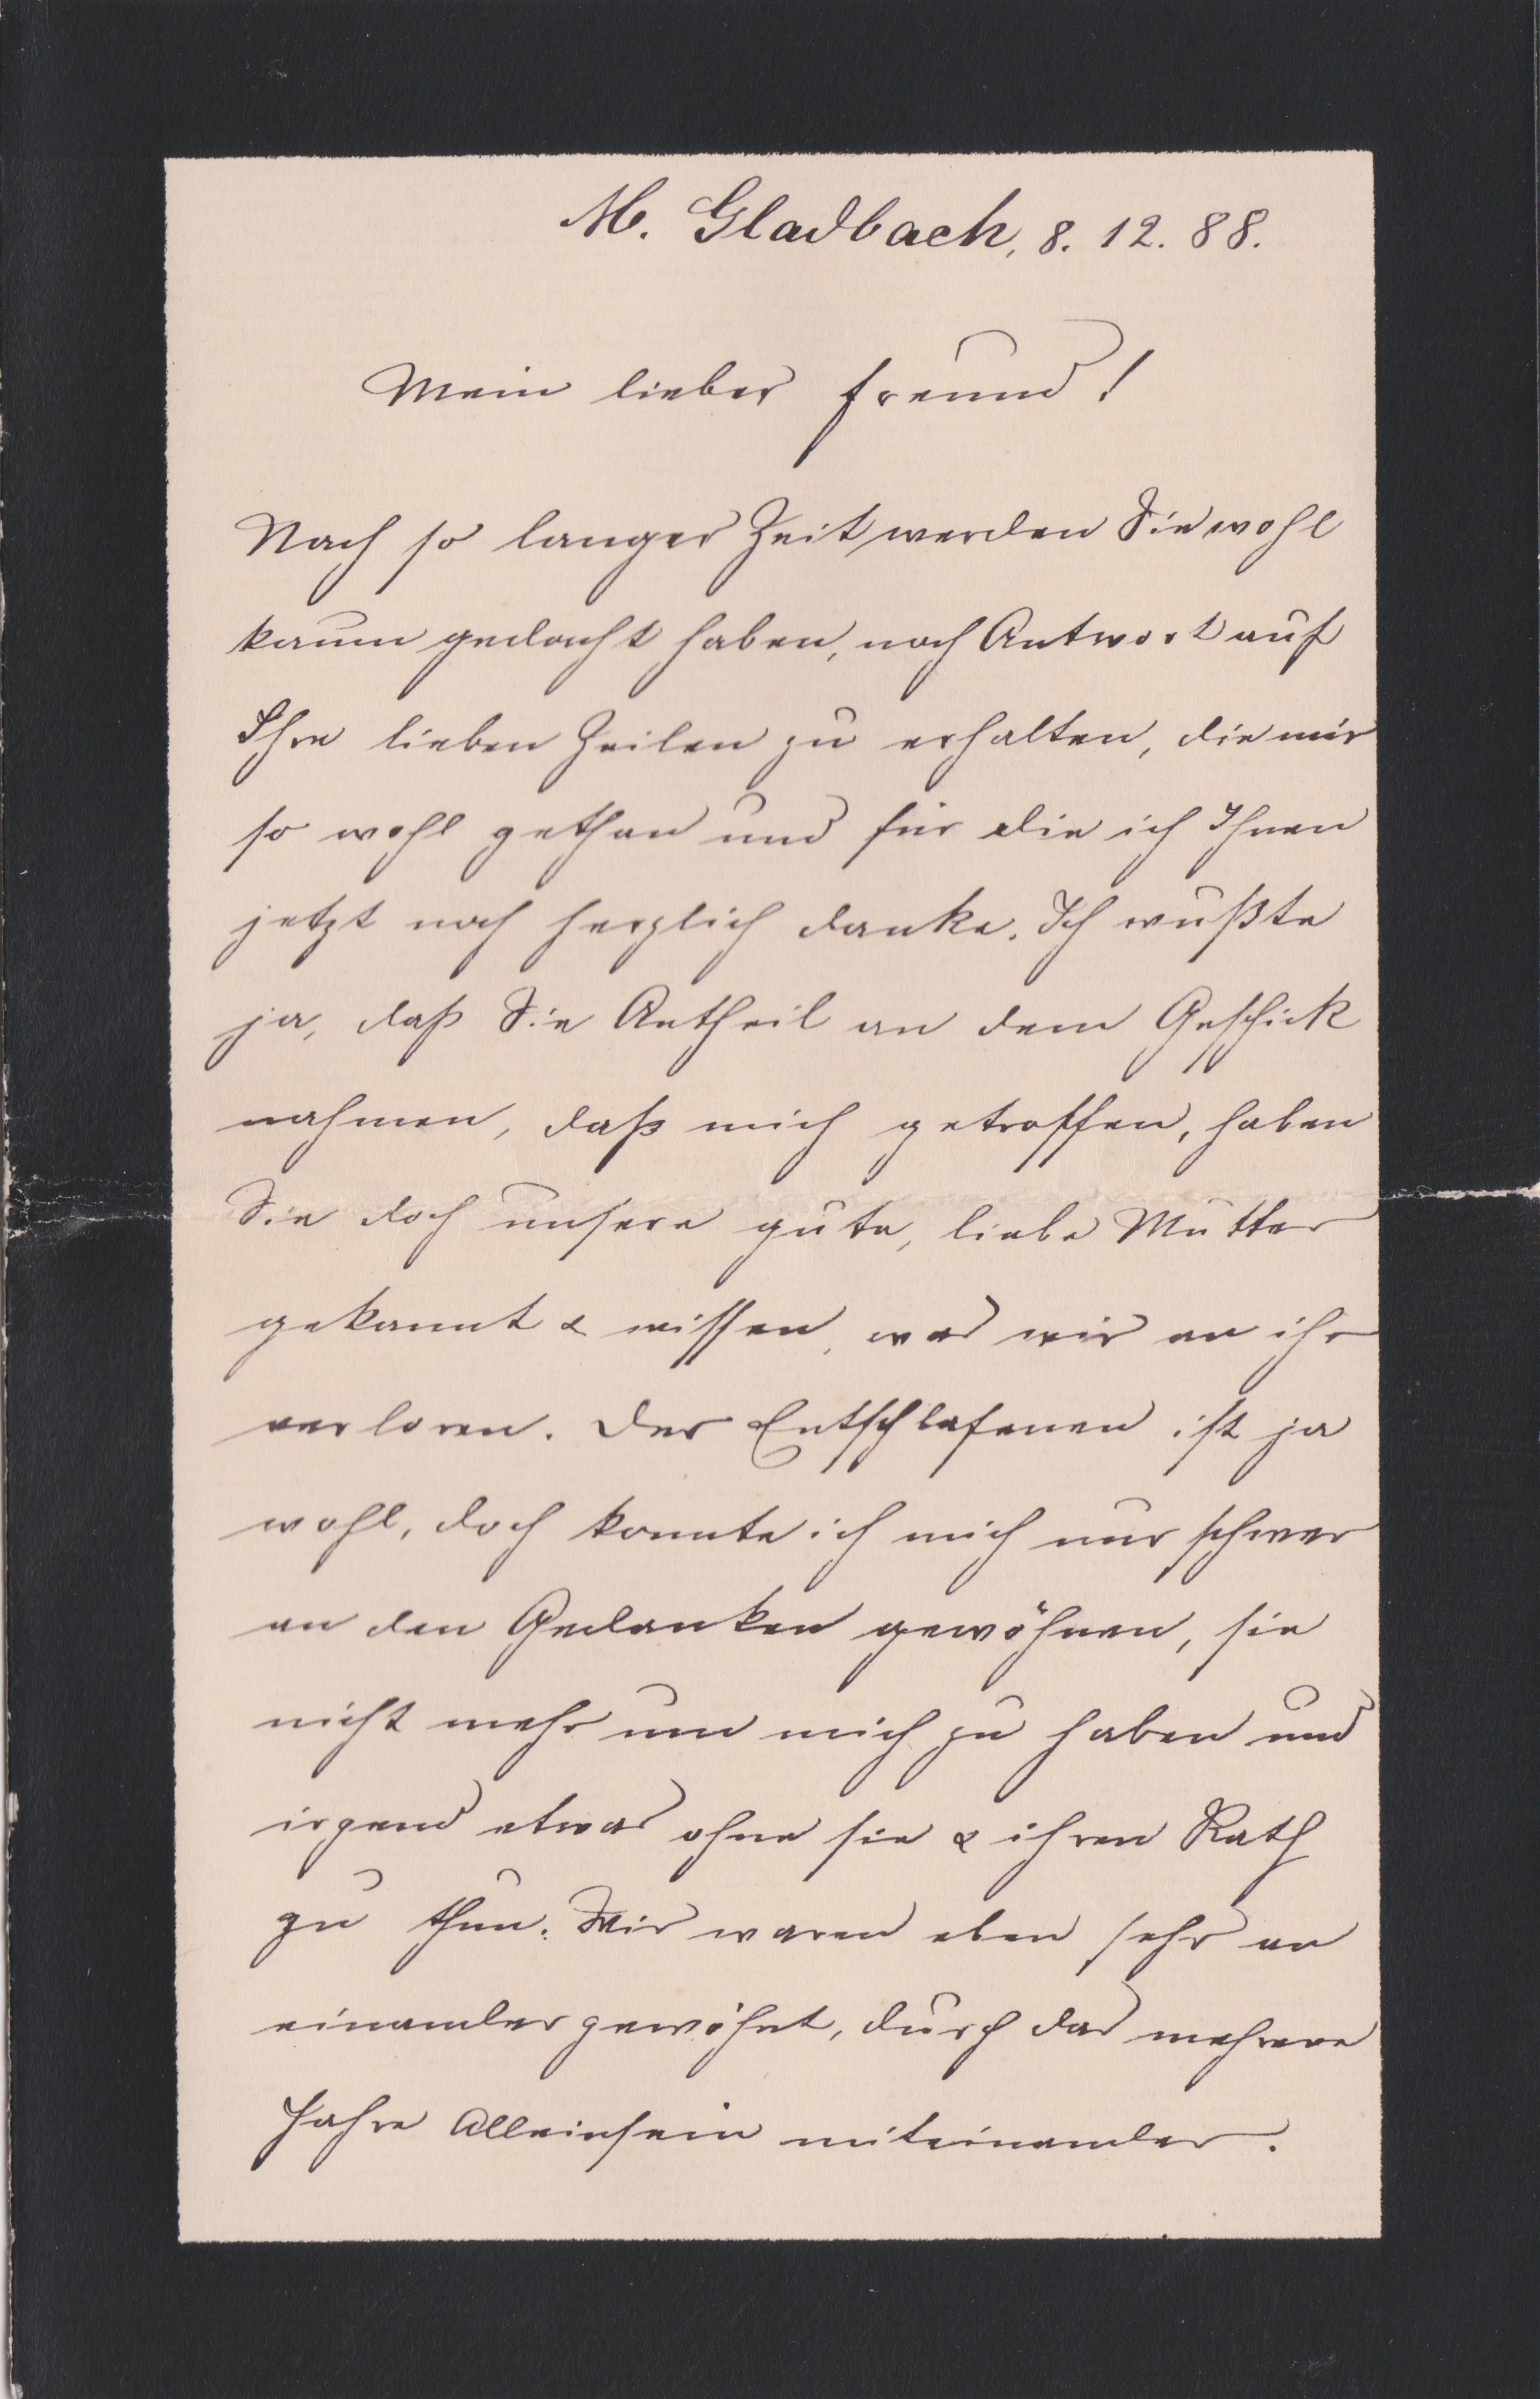 M. Gladbach, 8. 12. 88.
Mein lieber Freund!
Nach so langer Zeit werden Sie wohl
kaum gedacht haben, noch Antwort auf
Ihre lieben Zeilen zu erhalten, die mir
so wohl gethan und für die ich Ihnen
jetzt noch herzlich danke. Ich wußte
ja, daß Sie Antheil an dem Geschick
nahmen, daß mich getroffen, haben
Sie doch unsere gute, liebe Mutter
gekannt & wissen, was wir an ihr
verloren. Der Entschlafenen ist ja
wohl, doch konnte ich mich nur schwer
an den Gedanken gewöhnen, sie
nicht mehr um mich zu haben und
irgend etwas ohne sie & ihren Rath
zu thun. Wir waren eben sehr an
einander gewöhnt, durch das mehrere
Jahre Alleinsein miteinander.